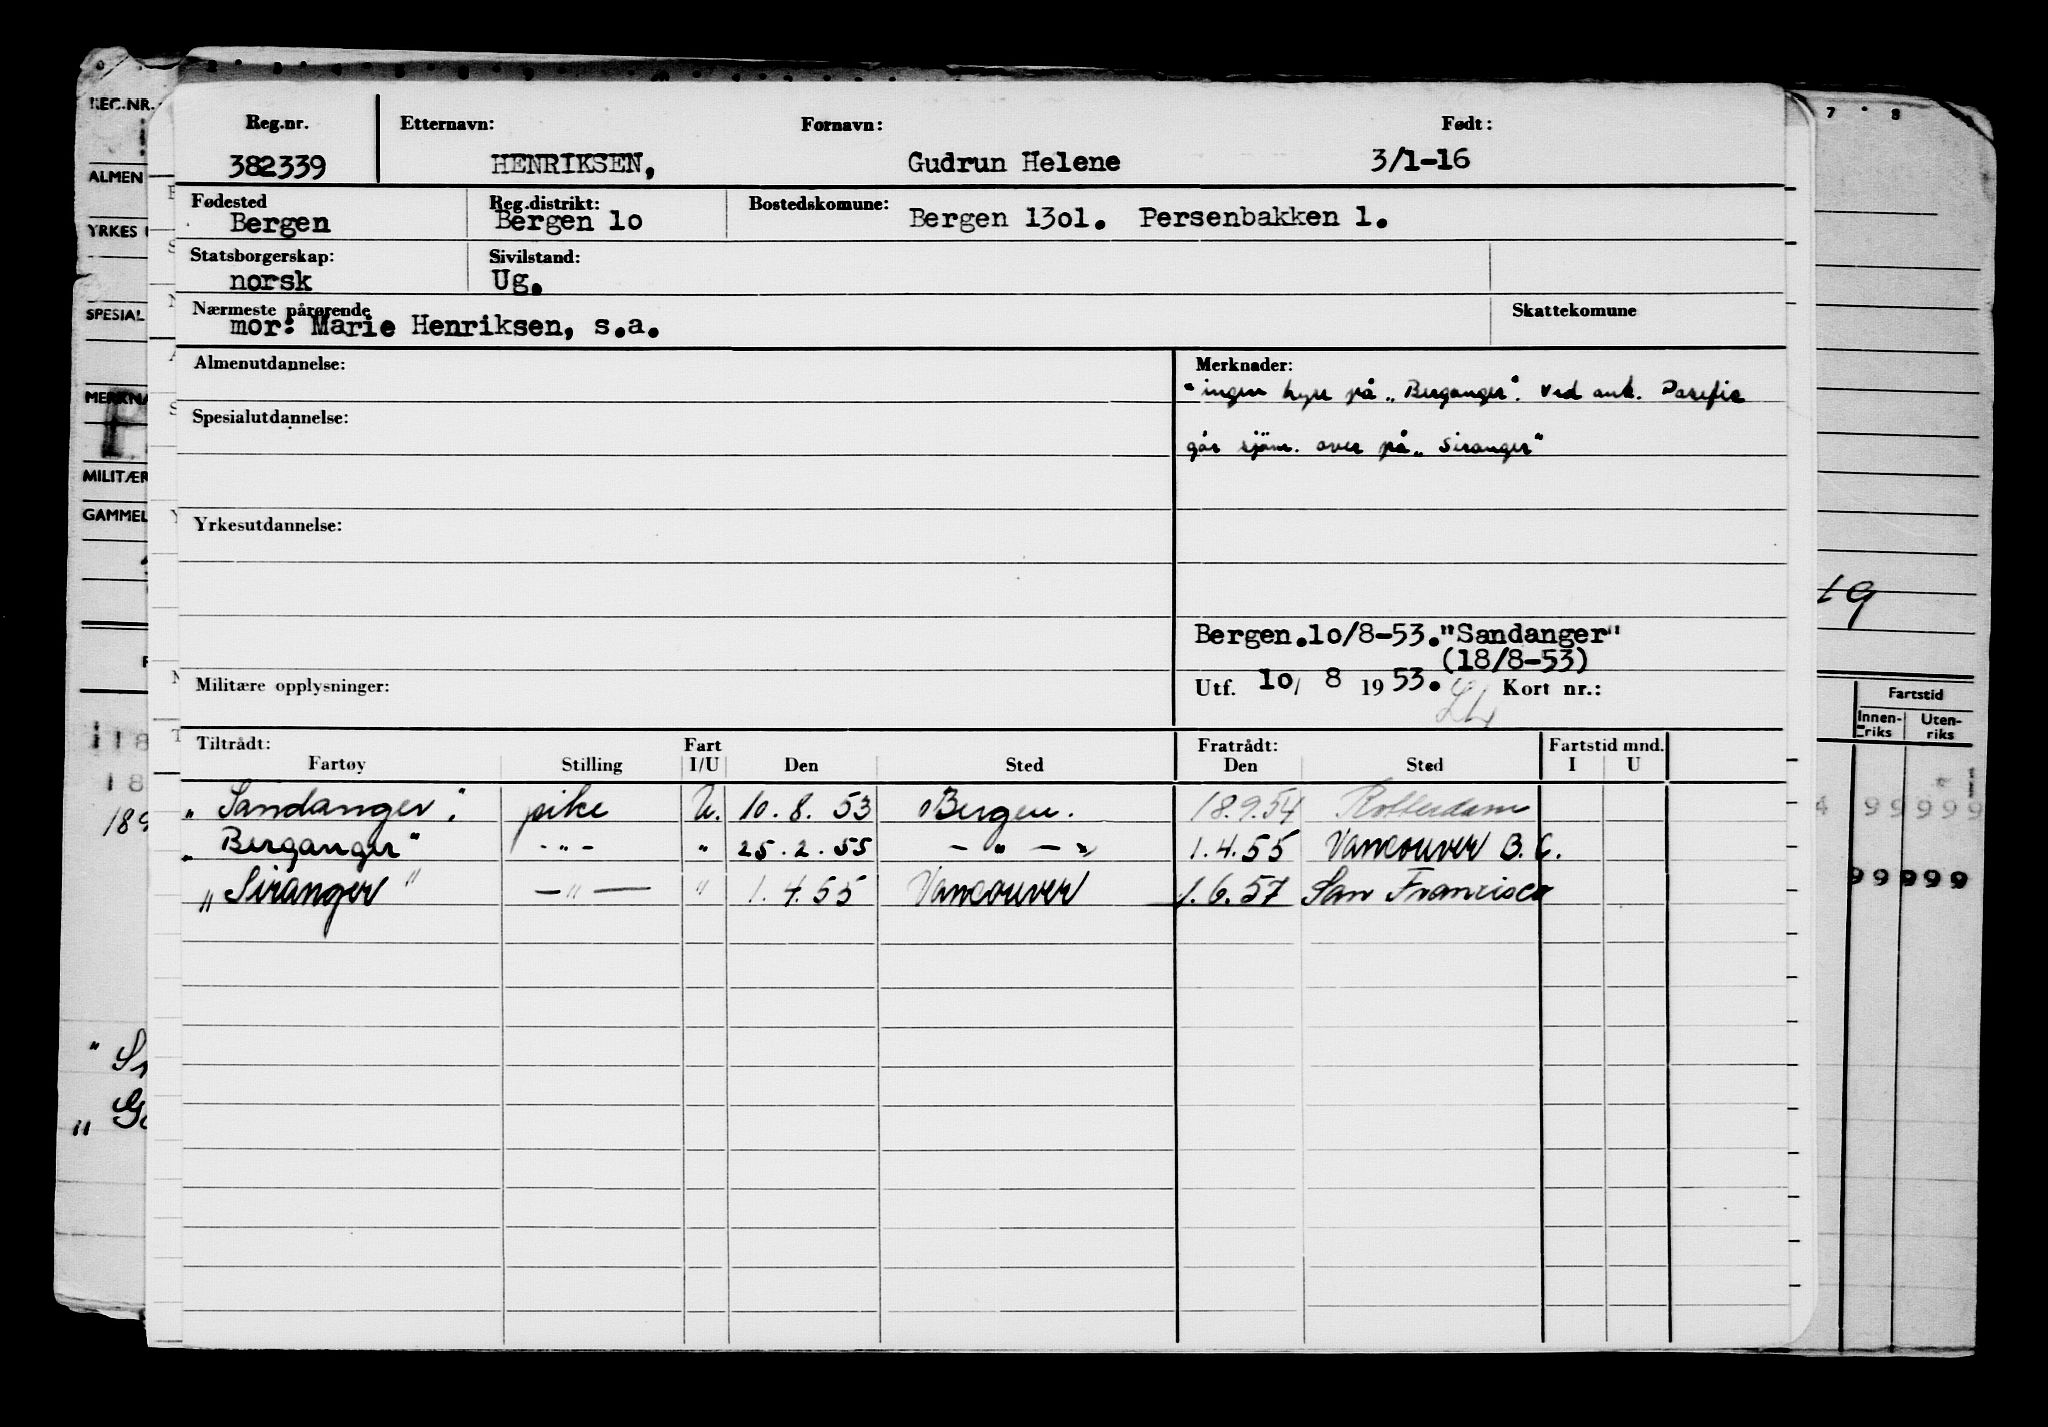 Reg.nr. Etternavn: Fornavn: Født:
382339 HENRIKSEN, Gudrun Helene 3/1-16
Fødested Reg.distrikt: Bostedskomune:
Bergen Bergen 10 Bergen 1301. Persenbakken 1.
Statsborgerskap: Sivilstand:
norsk Ug.
Nærmeste pårørende Skattekomune
mor: Marie Henriksen, s.a.
Almenutdannelse: Merknader:
"ingen hyre på „Berganger". Ved ank. Pasefic
Spesialutdannelse:
går sjøm. over på „Siranger"
Yrkesutdannelse:
Bergen.10/8-53."Sandanger"
(18/8-53)
Militære opplysninger: Utf. 10/ 8 1953. Kort nr.:
Tiltrådt: Fart Fratrådt: Fartstid mnd.
Fartøy Stilling I/U Den Sted Den Sted I U
"Sandanger". pike U. 10. 8. 53 Bergen. 18.9.54 Rotterdam
„Berganger" -"- " 25.2.55 -"-" 1.4.55 Vancouver B.C.
„Siranger" -"- " 1.4.55 Vancouver 1.6.57 San Francisco
REG.NR.
ALMEN
YRKES
SPESIAL
MERKNA
MILITÆR
GAMMEL
7 8
19
Fartstid
Innen- Uten-
riks riks
18
18
189
99 999
99 999